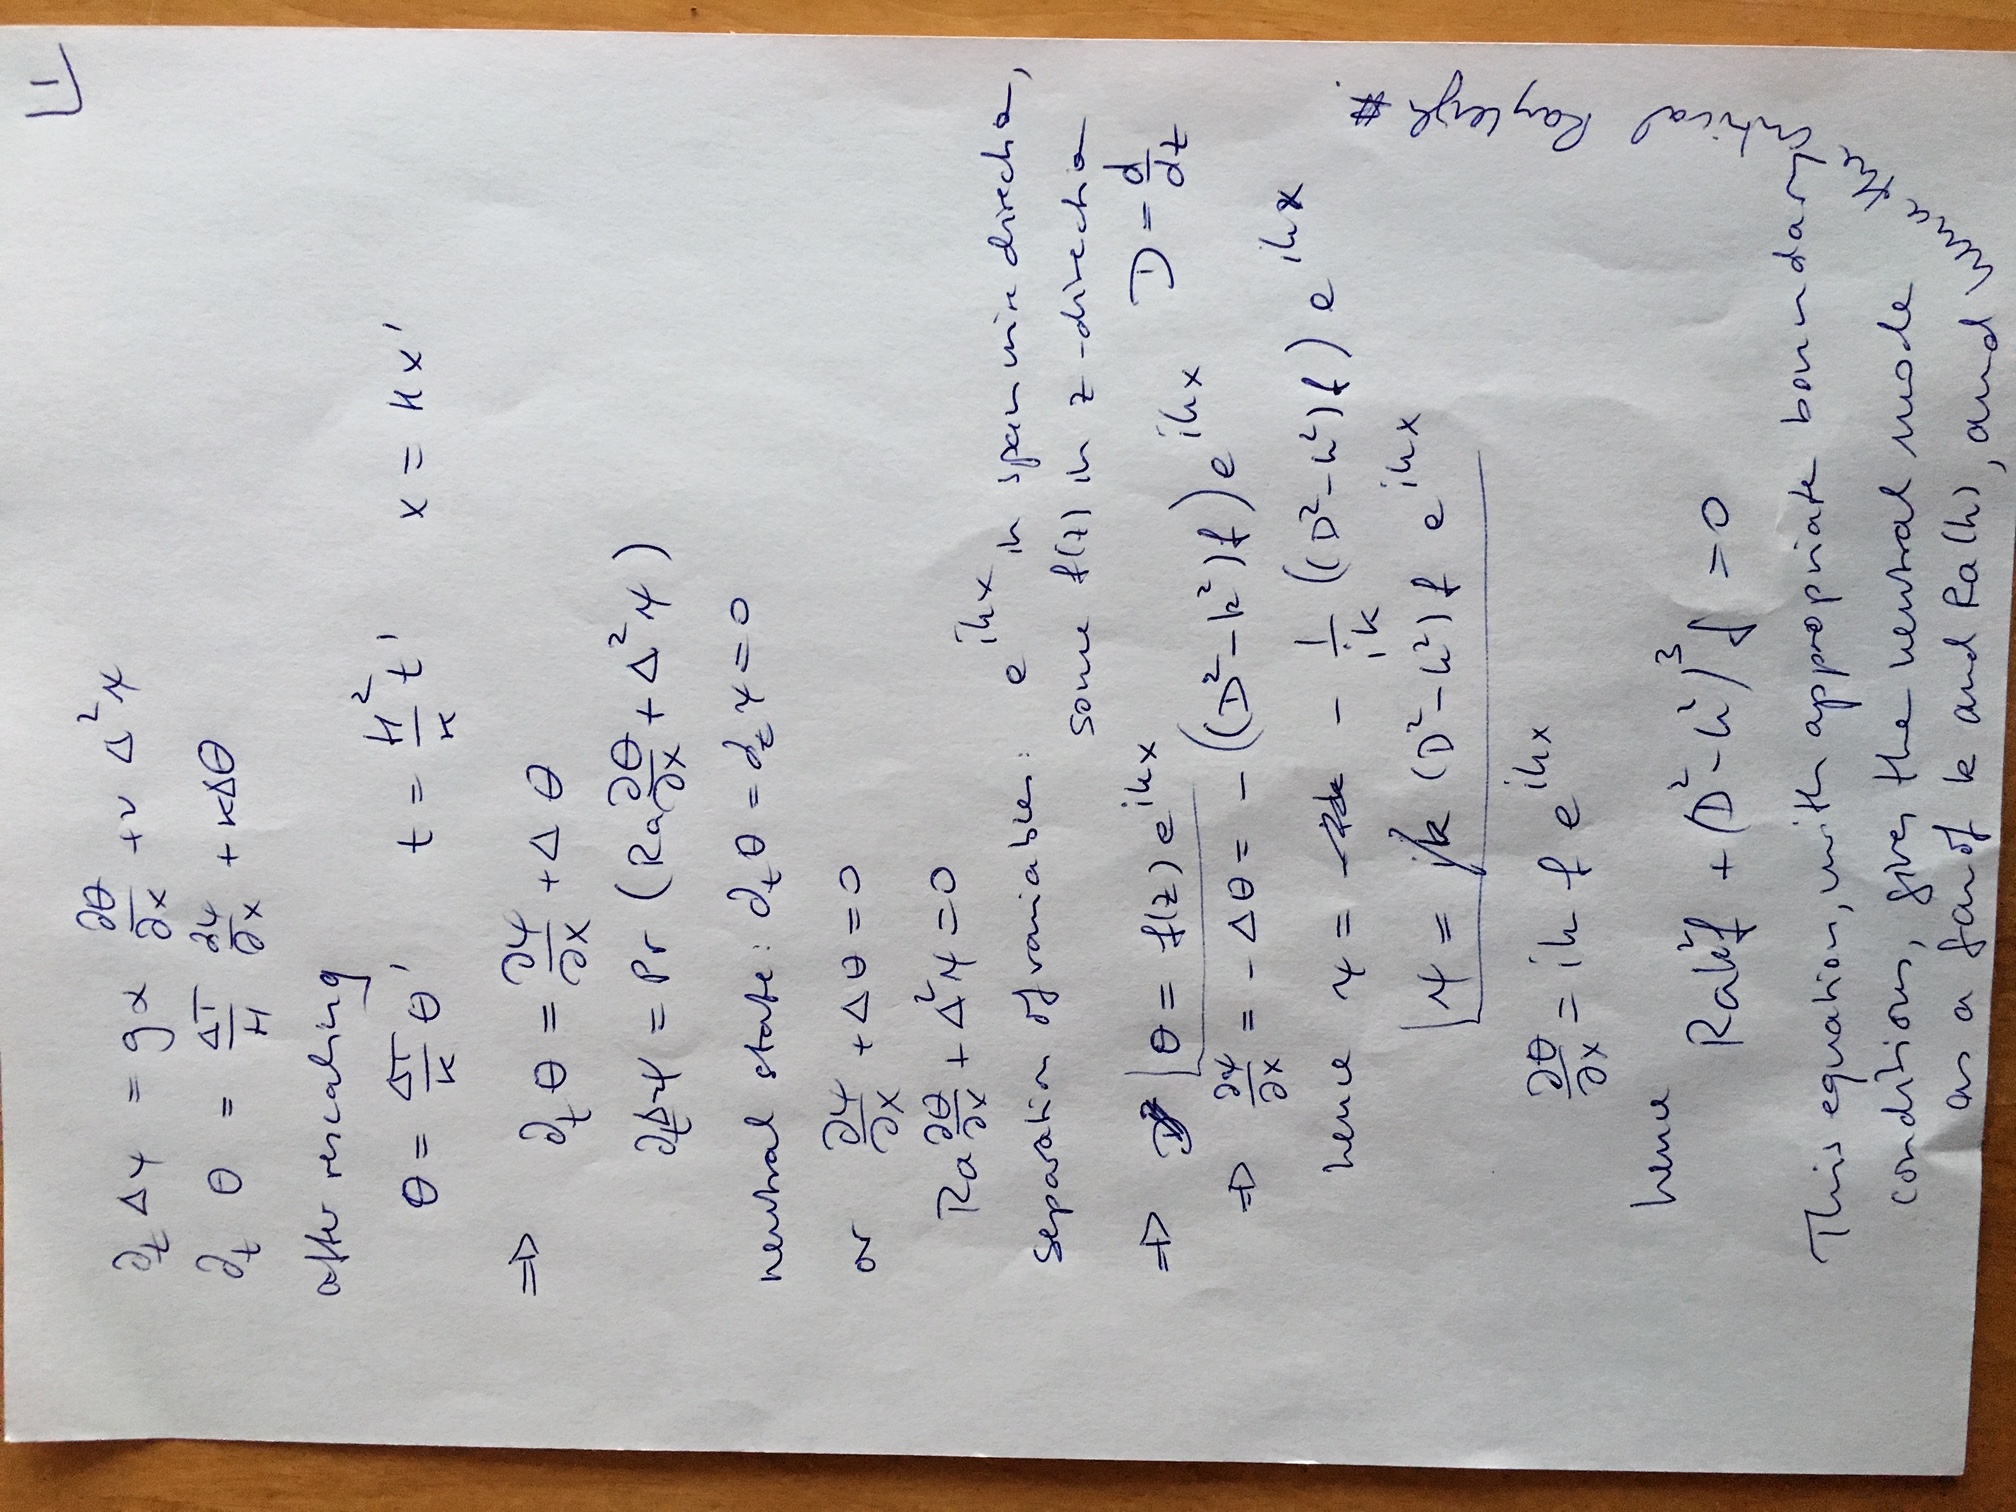 1
∂_t Δψ = gα ∂θ/∂x + ν Δ²ψ
∂_t θ = ΔT/H ∂ψ/∂x + κΔθ
after rescaling
θ = ΔT/κ θ' t = H²/κ t' x = Hx'
⇒ ∂_t θ = ∂ψ/∂x + Δ θ
∂_tΔψ = Pr (Ra ∂θ/∂x + Δ²ψ)
neutral state: ∂_t θ = ∂_t ψ = 0
or ∂ψ/∂x + Δθ = 0
Ra ∂θ/∂x + Δ²ψ = 0
separation of variables: e^{ikx} in spanwise direction,
some f(z) in z-direction
⇒ θ = f(z) e^{ikx} D = d/dz
⇒ ∂ψ/∂x = - Δθ = - ((D²-k²)f) e^{ikx}
hence ψ = - 1/ik ((D²-k²)f) e^{ikx}
ψ = i/k (D²-k²)f e^{ikx}
∂θ/∂x = ik f e^{ikx}
hence
Rak²f + (D²-k²)³f = 0
This equation, with appropriate boundary
conditions, gives the neutral mode
as a fan of k and Ra(k), and
hence the critical Rayleigh #.